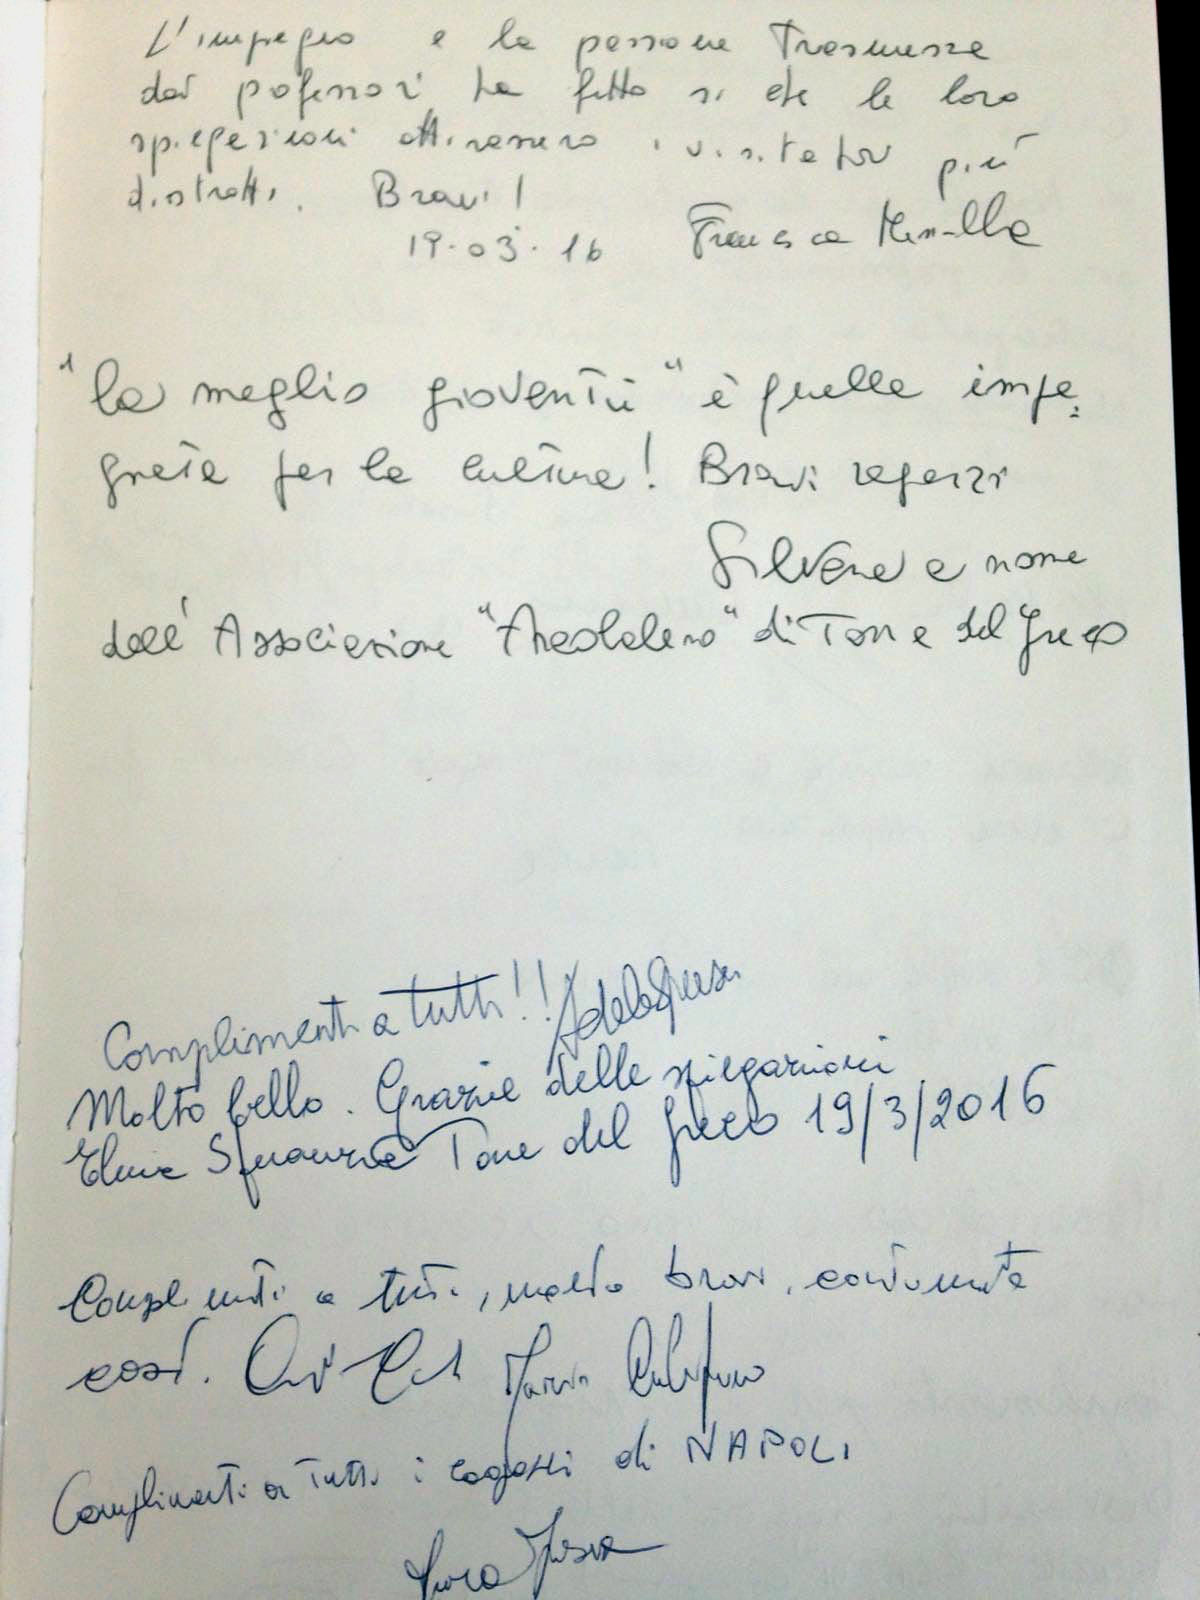 L'impegno e la passione trasmessa
dai professori ha fatto sì che le loro
spiegazioni attirassero i visitatori più
distratti. Bravi!
19.03.16 Francesca
"la meglio gioventù" è quella impe
gnata per la cultura! Bravi ragazzi
Silvana e nome
dell'Associazione di Torre del Greco
Complimenti a tutti!! Adele
Molto bello. Grazie delle spiegazioni
Torre del Greco 19/3/2016
Complimenti a tutti, molto bravi, continuate
così.
Complimenti a tutti i ragazzi di NAPOLI